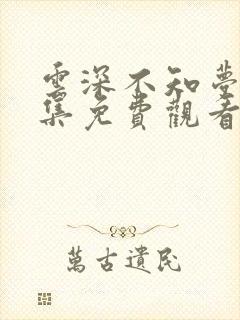 雲深不知夢
集免費觀看
萬古遺民